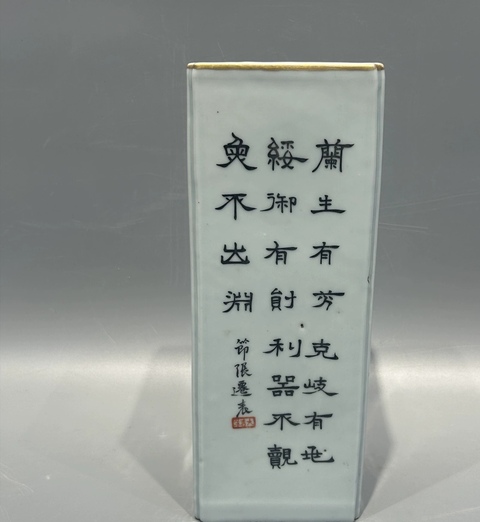 蘭生有芬克岐有兆
綏御有勛利器不覿
魚不出淵
節張遷表